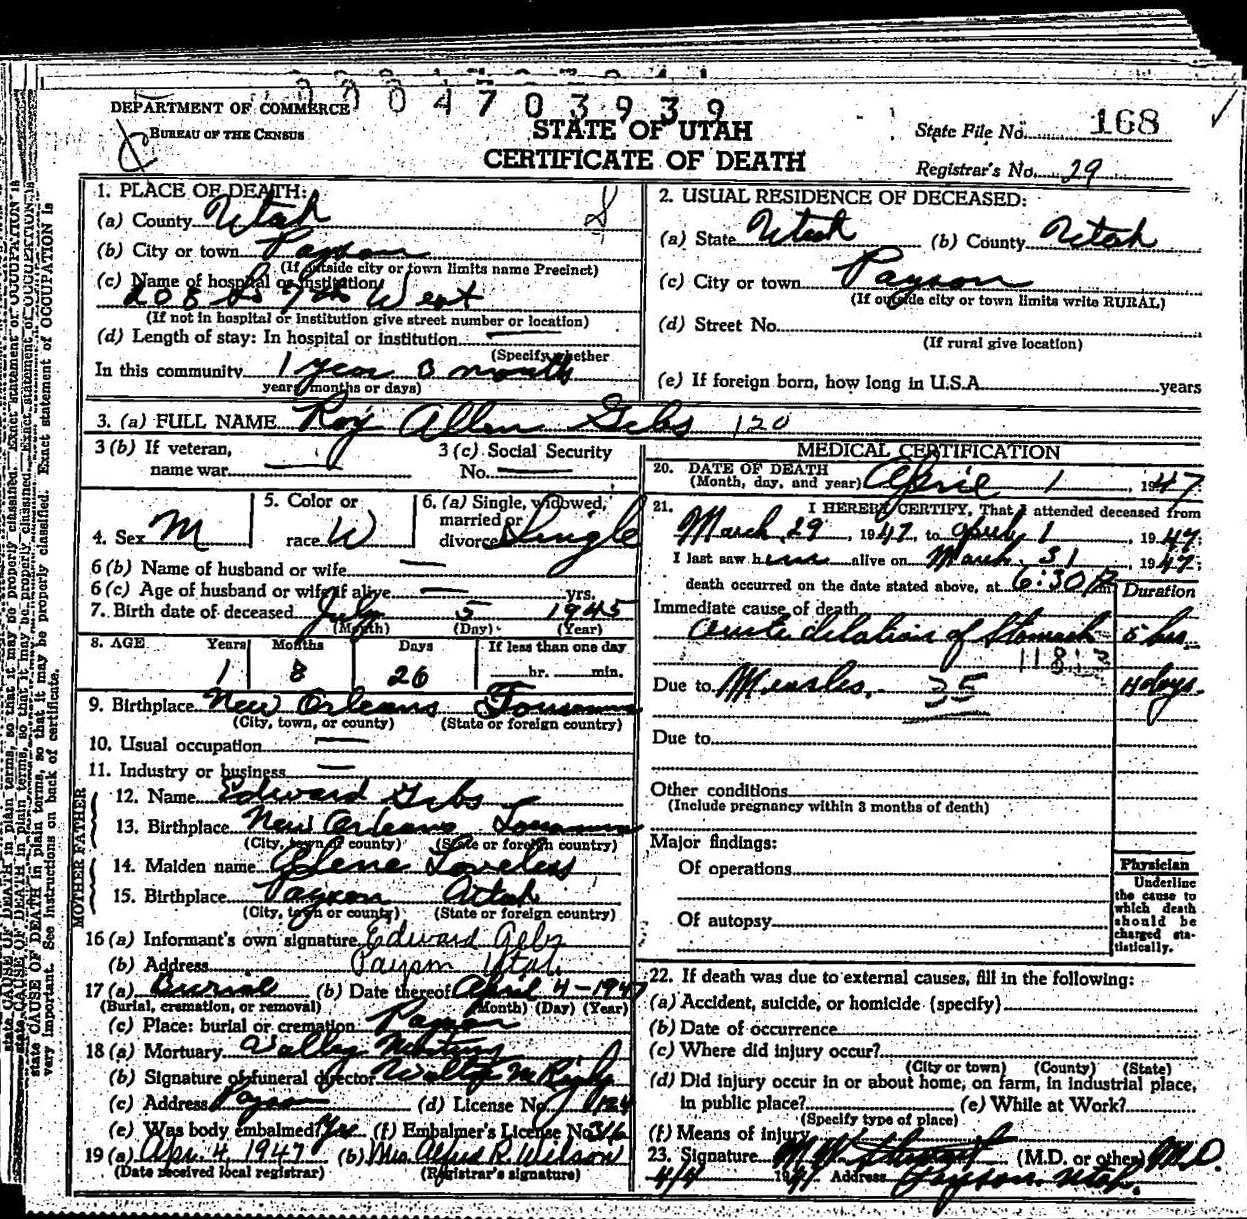 00047039 39
DEPARTMENT OF COMMERCE
BUREAU OF THE CENSUS
STATE OF UTAH
CERTIFICATE OF DEATH
State File No. 168
Registrar's No. 29
1. PLACE OF DEATH:
(a) County Utah
(b) City or town Payson
(If outside city or town limits name Precinct)
(c) Name of hospital or institution:
208 So 7th West
(If not in hospital or institution give street number or location)
(d) Length of stay: In hospital or institution
(Specify whether
In this community 1 year 8 months
years, months or days)
2. USUAL RESIDENCE OF DECEASED:
(a) State Utah (b) County Utah
(c) City or town Payson
(If outside city or town limits write RURAL)
(d) Street No.
(If rural give location)
(e) If foreign born, how long in U.S.A. years
3. (a) FULL NAME Roy Allen Gebs 120
3 (b) If veteran,
name war
3 (c) Social Security
No.
4. Sex M
5. Color or
race W
6. (a) Single, widowed,
married or
divorced Single
6 (b) Name of husband or wife
6 (c) Age of husband or wife if alive yrs.
7. Birth date of deceased July 5 1945
(Month) (Day) (Year)
8. AGE Years Months Days If less than one day
1 8 26 hr. min.
9. Birthplace New Orleans Louisiana
(City, town, or county) (State or foreign country)
10. Usual occupation
11. Industry or business
FATHER
12. Name Edward Gebs
13. Birthplace New Orleans Louisiana
(City, town or county) (State or foreign country)
MOTHER
14. Maiden name Glene Loveless
15. Birthplace Payson Utah
(City, town or county) (State or foreign country)
16 (a) Informant's own signature Edward Gebs
(b) Address Payson Utah
17 (a) Burial (b) Date thereof April 4-1947
(Burial, cremation, or removal) (Month) (Day) (Year)
(c) Place: burial or cremation Payson
18 (a) Mortuary Valley Mortuary
(b) Signature of funeral director
(c) Address Payson (d) License No. 124
(e) Was body embalmed? Yes (f) Embalmer's License No. 316
19 (a) Apr. 4, 1947 (b) Mrs. R. Wilson
(Date received local registrar) (Registrar's signature)
MEDICAL CERTIFICATION
20. DATE OF DEATH
(Month, day, and year) April 1, 1947
21. I HEREBY CERTIFY, That I attended deceased from
March 29, 1947, to April 1, 1947;
I last saw him alive on March 31, 1947;
death occurred on the date stated above, at 6:30 P.m.
Duration
Immediate cause of death
Acute dilation of Stomach 5 hrs
118
Due to Measles. 4 days.
35
Due to
Other conditions
(Include pregnancy within 3 months of death)
Major findings:
Of operations
Of autopsy
Physician
Underline
the cause to
which death
should be
charged sta-
tistically.
22. If death was due to external causes, fill in the following:
(a) Accident, suicide, or homicide (specify)
(b) Date of occurrence
(c) Where did injury occur?
(City or town) (County) (State)
(d) Did injury occur in or about home, on farm, in industrial place,
in public place? (e) While at Work?
(Specify type of place)
(f) Means of injury
23. Signature M.D. (M.D. or other)
4/4 1947. Address Payson, Utah.
state CAUSE OF DEATH in plain terms, so that it may be properly classified. Exact statement of OCCUPATION is
very important. See instructions on back of certificate.